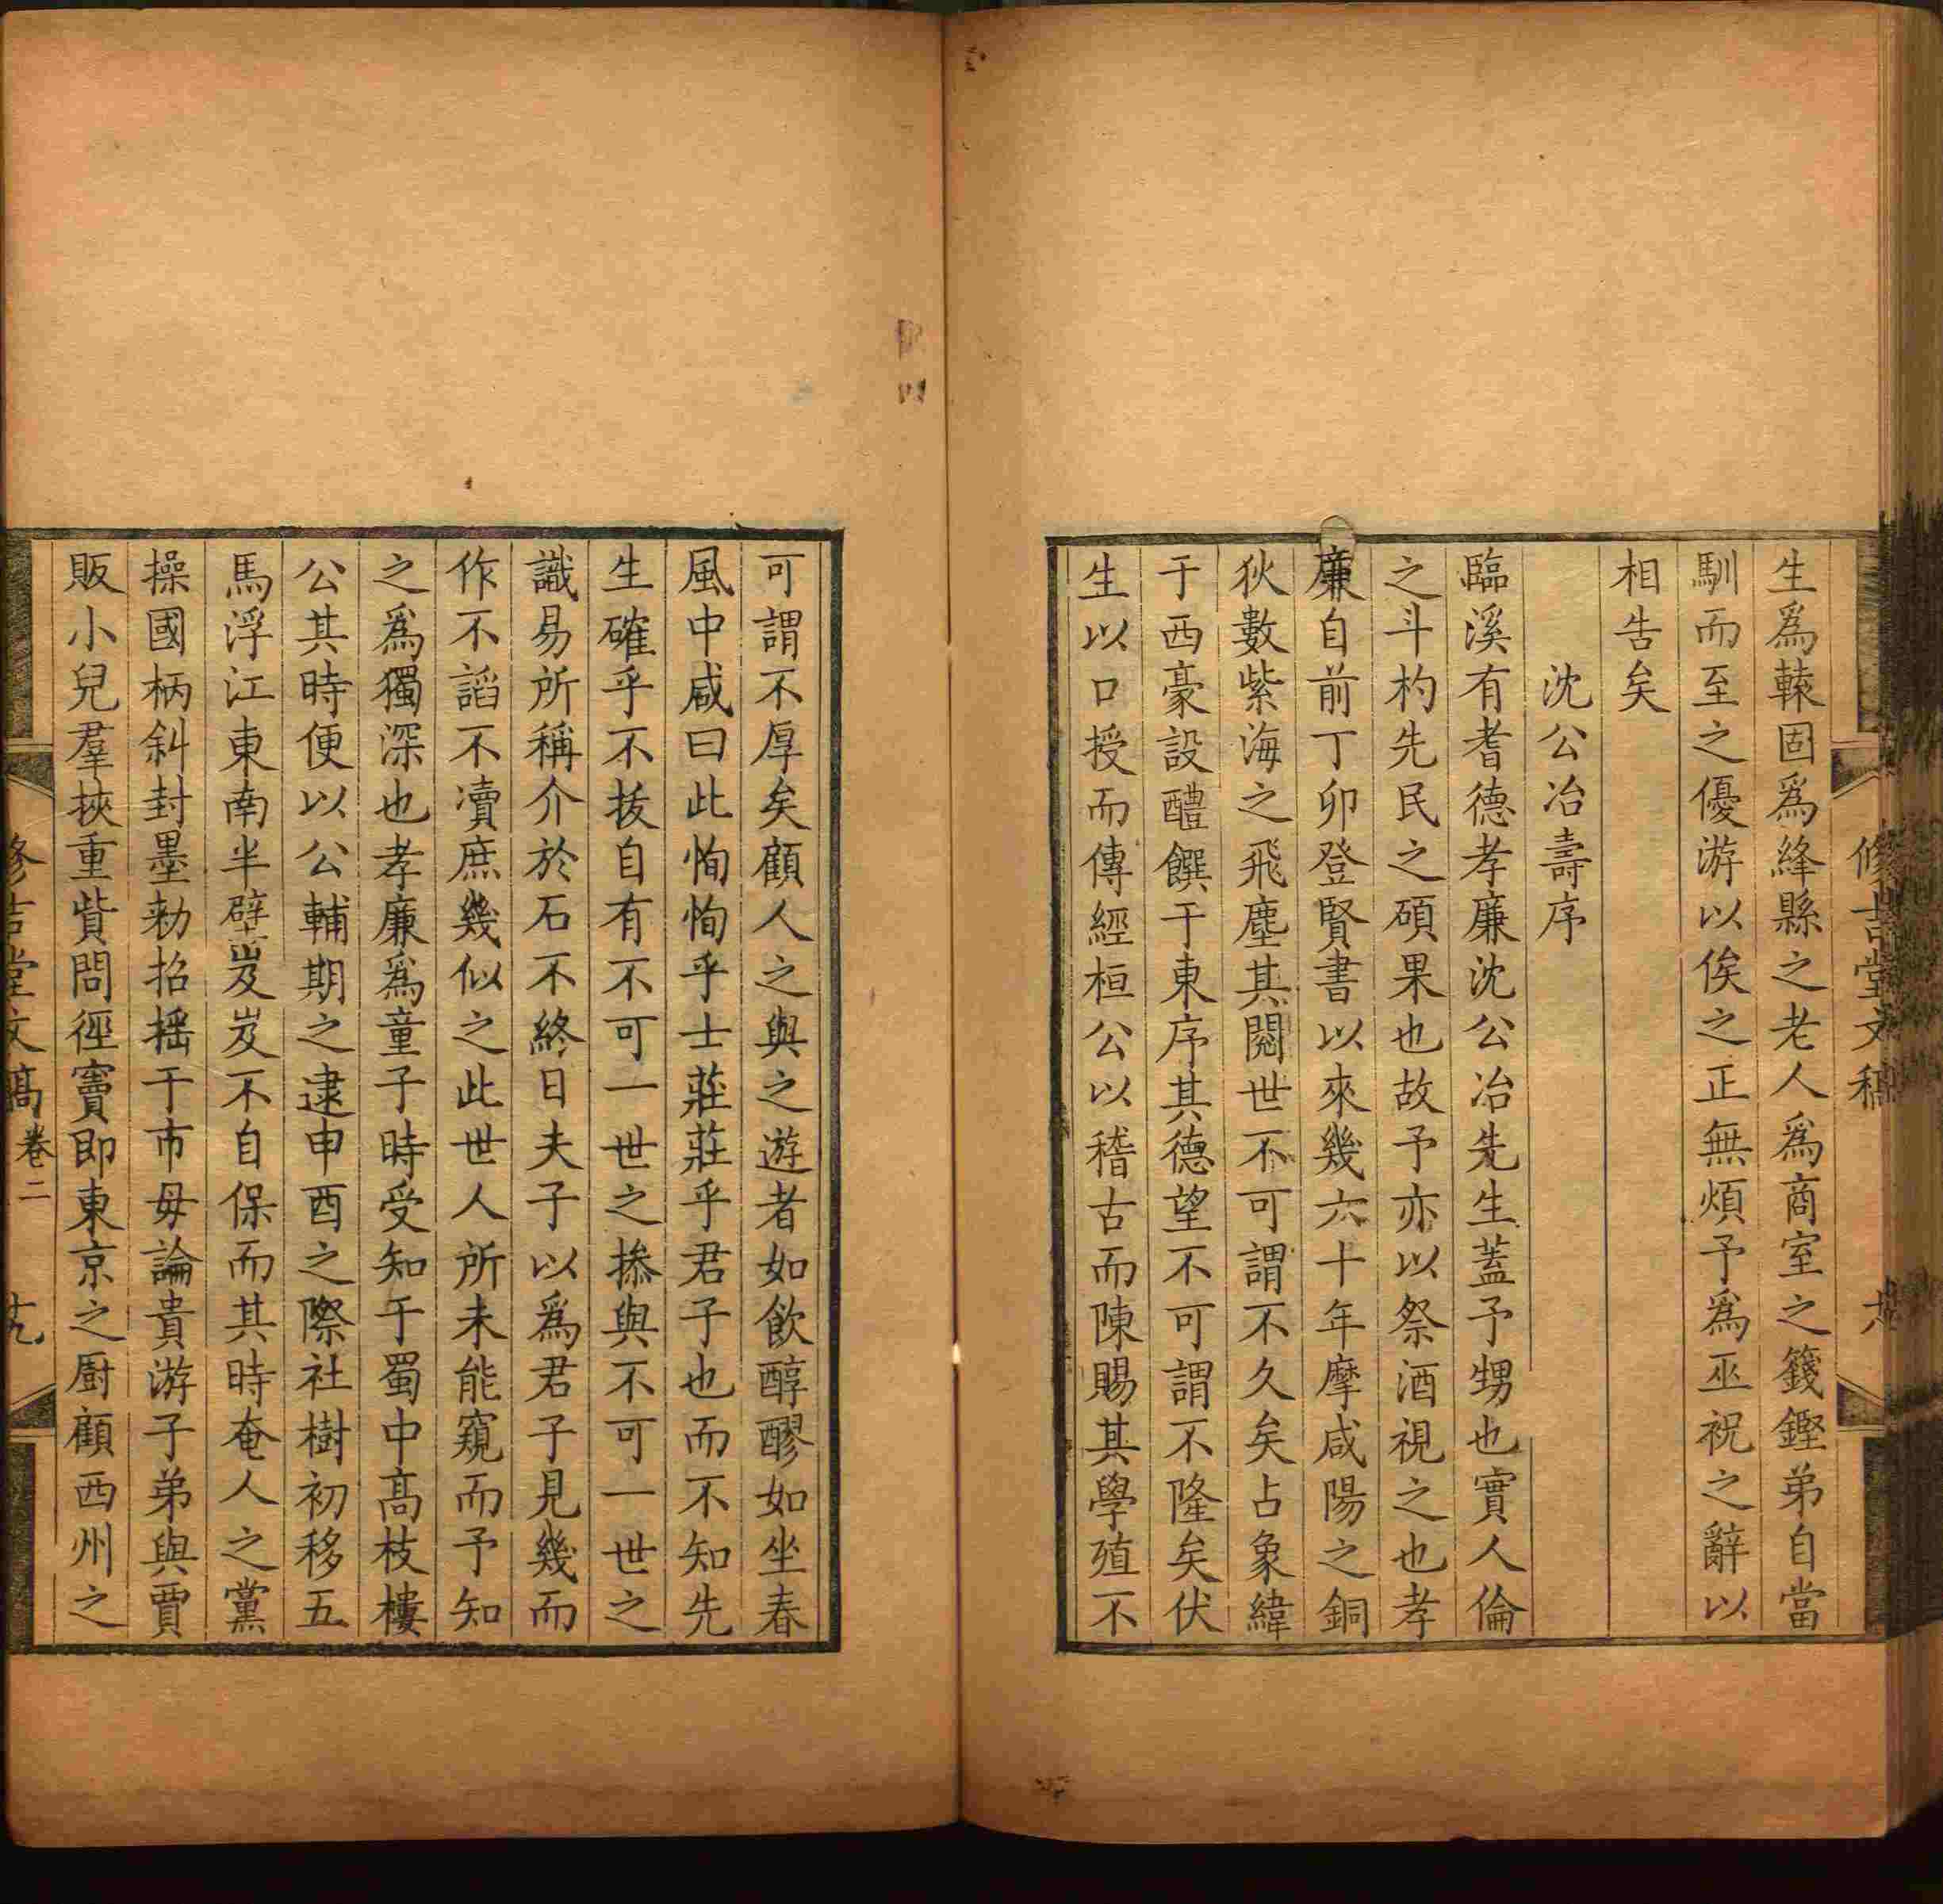 修吉堂文稿
生爲轅固爲絳縣之老人爲商室之籛鏗弟自當
馴而至之優游以俟之正無煩予爲巫祝之辭以
相告矣
沈公冶壽序
臨溪有耆德孝廉沈公冶先生蓋予甥也實人倫
之斗杓先民之碩果也故予亦以祭酒視之也孝
廉自前丁卯登賢書以來幾六十年摩咸陽之銅
狄數紫海之飛塵其閱世不可謂不久矣占象緯
于西豪設醴饌于東序其德望不可謂不隆矣伏
生以口授而傳經桓公以稽古而陳賜其學殖不
可謂不厚矣顧人之與之遊者如飲醇醪如坐春
風中咸曰此恂恂乎士莊莊乎君子也而不知先
生確乎不拔自有不可一世之摻與不可一世之
識易所稱介於石不終日夫子以爲君子見幾而
作不諂不瀆庶幾似之此世人所未能窺而予知
之爲獨深也孝廉爲童子時受知于蜀中高枝樓
公其時便以公輔期之逮申酉之際社樹初移五
馬浮江東南半壁岌岌不自保而其時奄人之黨
操國柄斜封墨勅招搖于市毋論貴游子弟與賈
販小兒羣挾重貲問徑竇即東京之廚顧西州之
修吉堂文稿 卷二